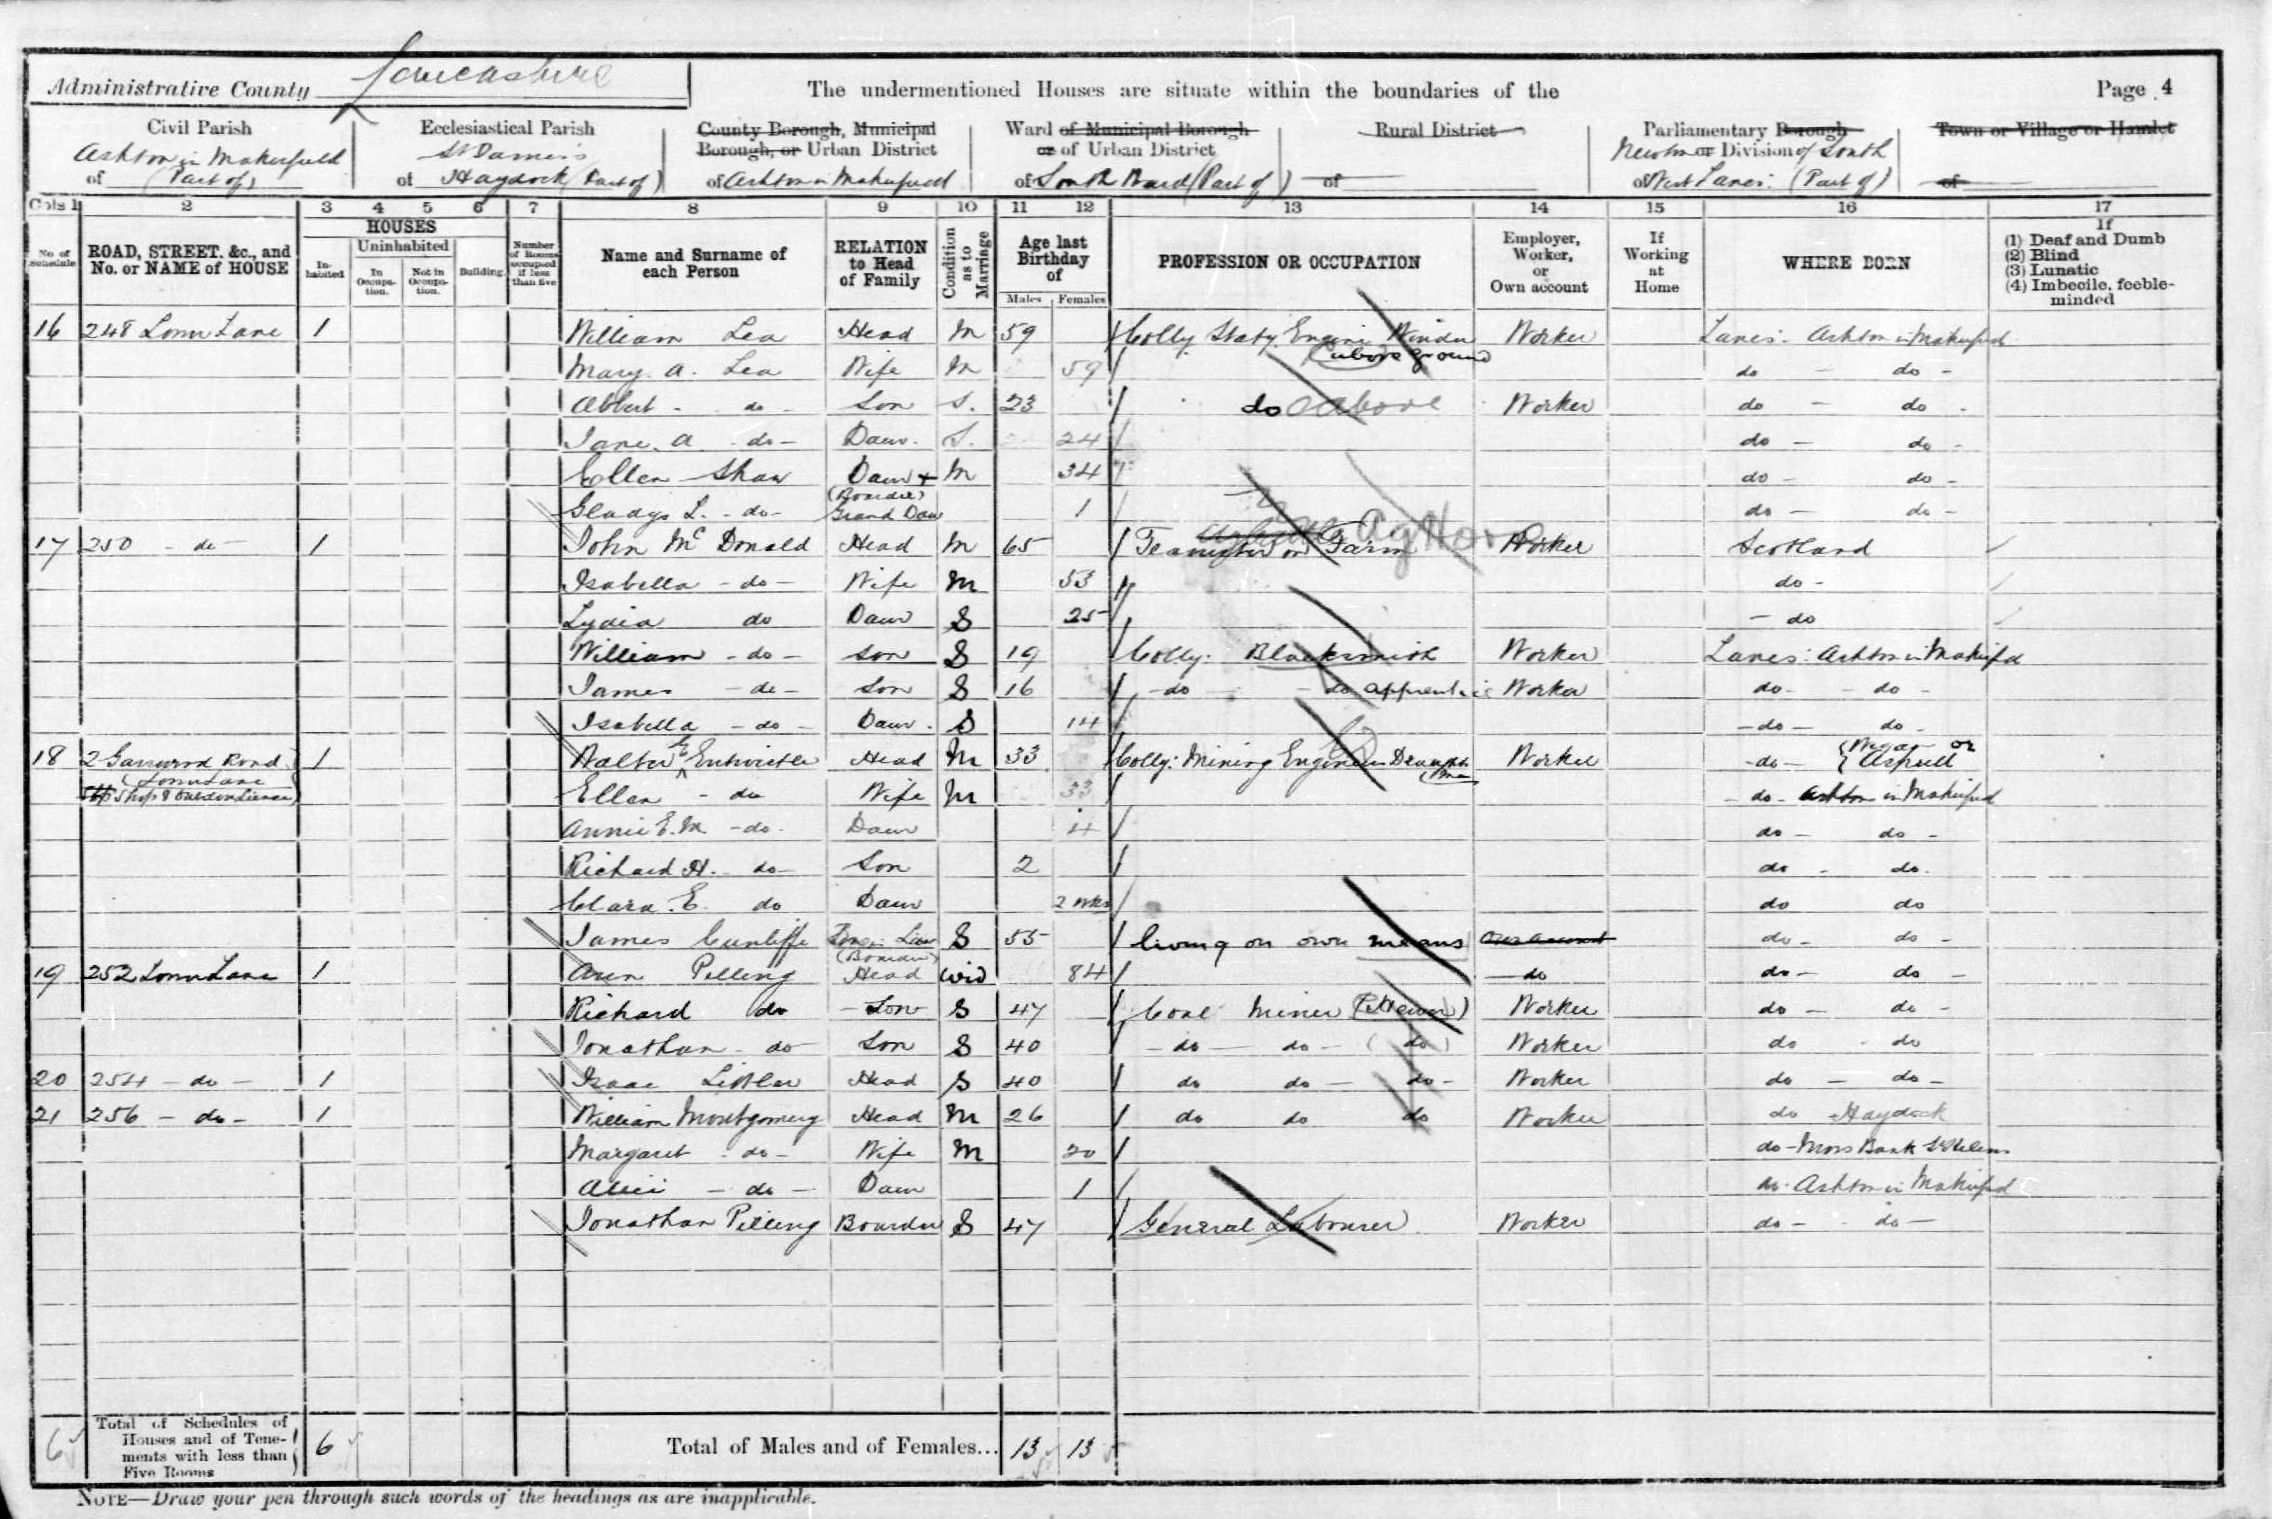 Administrative County Lancashire
The undermentioned Houses are situate within the boundaries of the
Page 4
Civil Parish
of Ashton in Makerfield (Part of)
Ecclesiastical Parish
of Haydock (Part of)
County Borough, Municipal Borough, or Urban District
of Ashton in Makerfield
Ward of Municipal Borough or of Urban District
of South Ward (Part of)
Rural District
of
Parliamentary Borough or Division of South
of West Lancs: (Part of)
Newton
Town or Village or Hamlet
of
Cols 1 2 3 4 5 6 7 8 9 10 11 12 13 14 15 16 17
No. of Schedule
ROAD, STREET, &c., and No. or NAME of HOUSE
HOUSES
Inhabited
Uninhabited
In Occupation.
Not in Occupation.
Building.
Number of Rooms occupied if less than five
Name and Surname of each Person
RELATION to Head of Family
Condition as to Marriage
Age last Birthday of
Males Females
PROFESSION OR OCCUPATION
Employer, Worker, or Own account
If Working at Home
WHERE BORN
If
(1) Deaf and Dumb
(2) Blind
(3) Lunatic
(4) Imbecile, feeble-minded
16 248 Lane 1 William Lea Head M 59 Colly Staty Engine Winder (above ground Worker Lancs: Ashton in Makerfield
Mary A. Lea Wife M 59 do - do -
Albert - do - Son S. 23 do above Worker do - do -
Jane. A - do - Daur. S. 24 do - do -
Ellen Shaw Daur + M 34 do - do -
(Boarder)
Gladys L. - do - Grand Daur 1 do - do -
17 250 - do - 1 John McDonald Head M 65 Teamster on Farm Ag Hor Worker Scotland
Isabella - do - Wife M 53 do -
Lydia do Daur S 25 - do
William - do - Son S 19 Colly: Blacksmith Worker Lancs: Ashton in Makerfd
James - do - Son S 16 - do - - do apprentice Worker do - - do -
Isabella - do - Daur. S 14 - do - do -
18 2 Garswood Road 1 Walter E Entwistle Head M 33 Colly: Mining Engineers Draughtsman Worker - do - {Wigan or Aspull
Shop & Outdoor License
Ellen - do Wife M 33 - do - Ashton in Makerfield
Annie E. M. - do - Daur 4 do - do -
Richard H. - do - Son 2 do - do.
Clara. E. do Daur 2 wks do do
James Cunliffe (Boarder) S 55 living on own means Own account do - do -
19 252 Lane 1 Ann Pilling Head Wid 84 - do do - do -
Richard do - Son S 47 Coal Miner (Hewer) Worker do - do -
Jonathan - do Son S 40 - do - do - (do) Worker do - do
20 254 - do - 1 Isaac Head S 40 do do - do - Worker do - do -
21 256 - do - 1 William Montgomery Head M 26 do do do Worker do Haydock
Margaret - do - Wife M 20 do - Moss Bank St Helens
Alice - do - Daur 1 do - Ashton in Makerfd
Jonathan Pilling Boarder S 47 General Labourer Worker do - - do -
6 Total of Schedules of Houses and of Tenements with less than Five Rooms 6
Total of Males and of Females... 13 13
NOTE—Draw your pen through such words of the headings as are inapplicable.